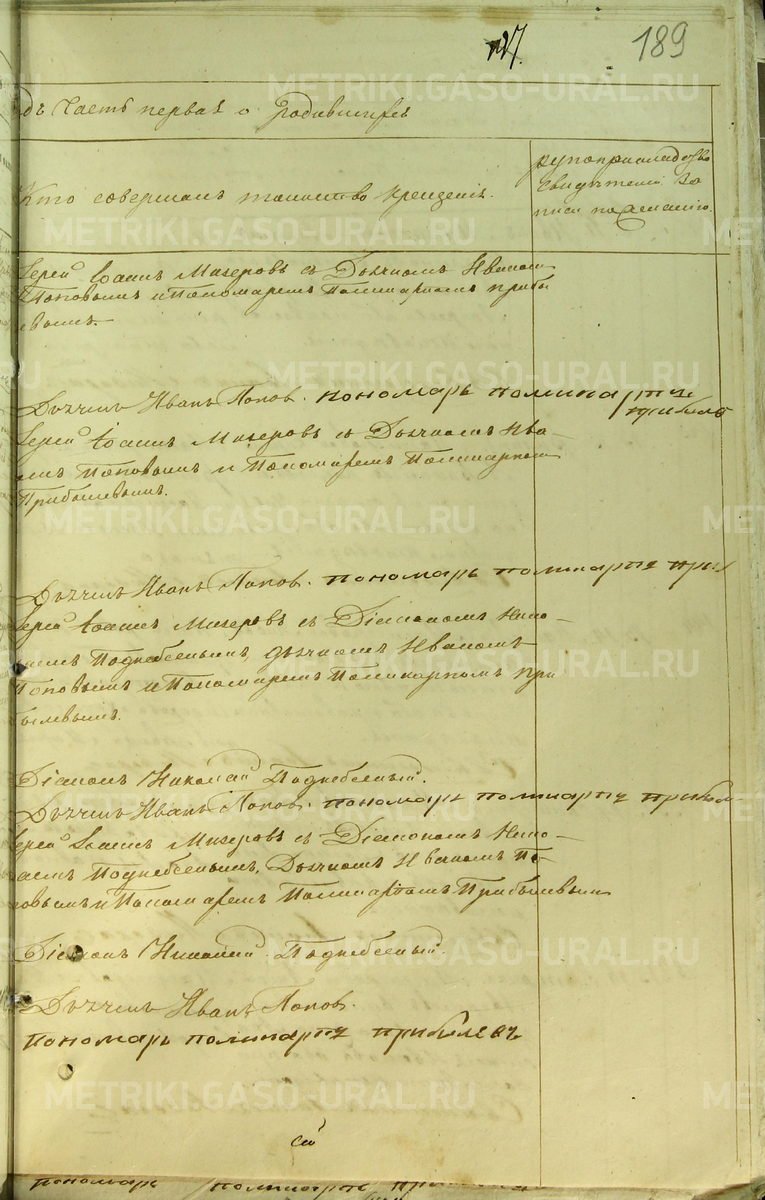 127. 189
дъ Часть первая о Родившихся
Кто совершалъ таинство крещенія.
рукоприкладство
свидѣтелей за
писи по желанію.
Іерей Іоаннъ Мизеровъ съ Дьячкомъ Иваномъ
Поповымъ и Пономаремъ Поликарпомъ Прибы
левымъ.
Дьячекъ Иванъ Поповъ. пономарь поликарпъ
прибыле
Іерей Іоаннъ Мизеровъ съ Дьячкомъ Ива-
номъ Поповымъ и Пономаремъ Поликарпомъ
Прибылевымъ.
Дьячекъ Иванъ Поповъ. пономарь поликарпъ при
Іерей Іоаннъ Мизеровъ съ Діакономъ Нико-
лаемъ Поднебеснымъ, дьячкомъ Иваномъ
Поповымъ и Пономаремъ Поликарпомъ При
былевымъ.
Діаконъ Николай Поднебесный.
Дьячекъ Иванъ Поповъ. пономарь поликарпъ прибыл
Іерей Іоаннъ Мизеровъ съ Діакономъ Нико-
лаемъ Поднебеснымъ, Дьячкомъ Иваномъ По-
повымъ и Пономаремъ Поликарпомъ Прибылевым
Діаконъ Николай Поднебесный.
Дьячекъ Иванъ Поповъ.
пономарь поликарпъ прибылевъ
сей
пономарь поликарпъ
METRIKI.GASO-URAL.RU